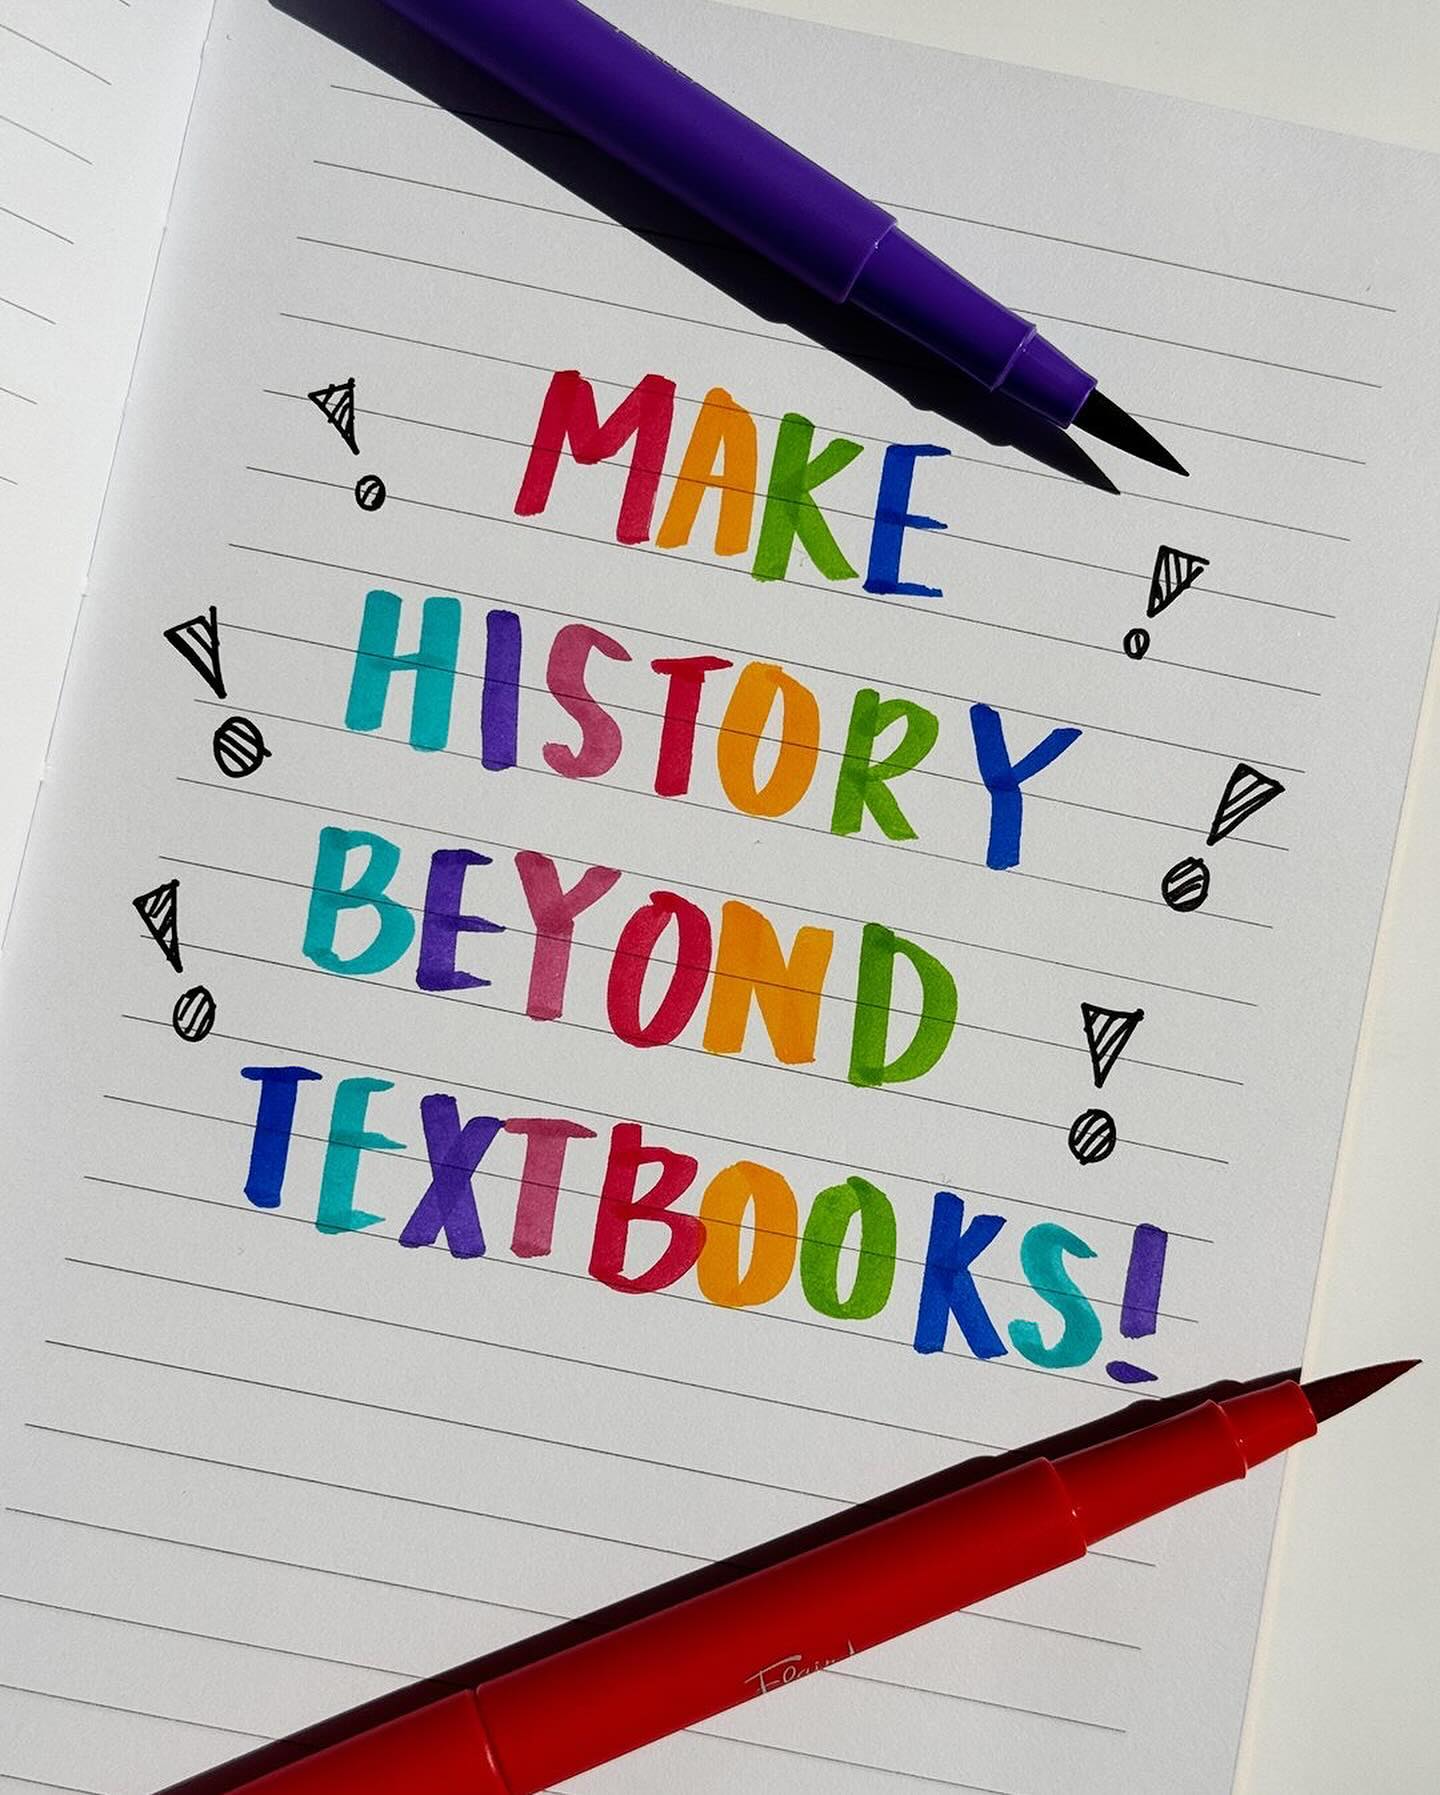 MAKE
HISTORY
BEYOND
TEXTBOOKS!